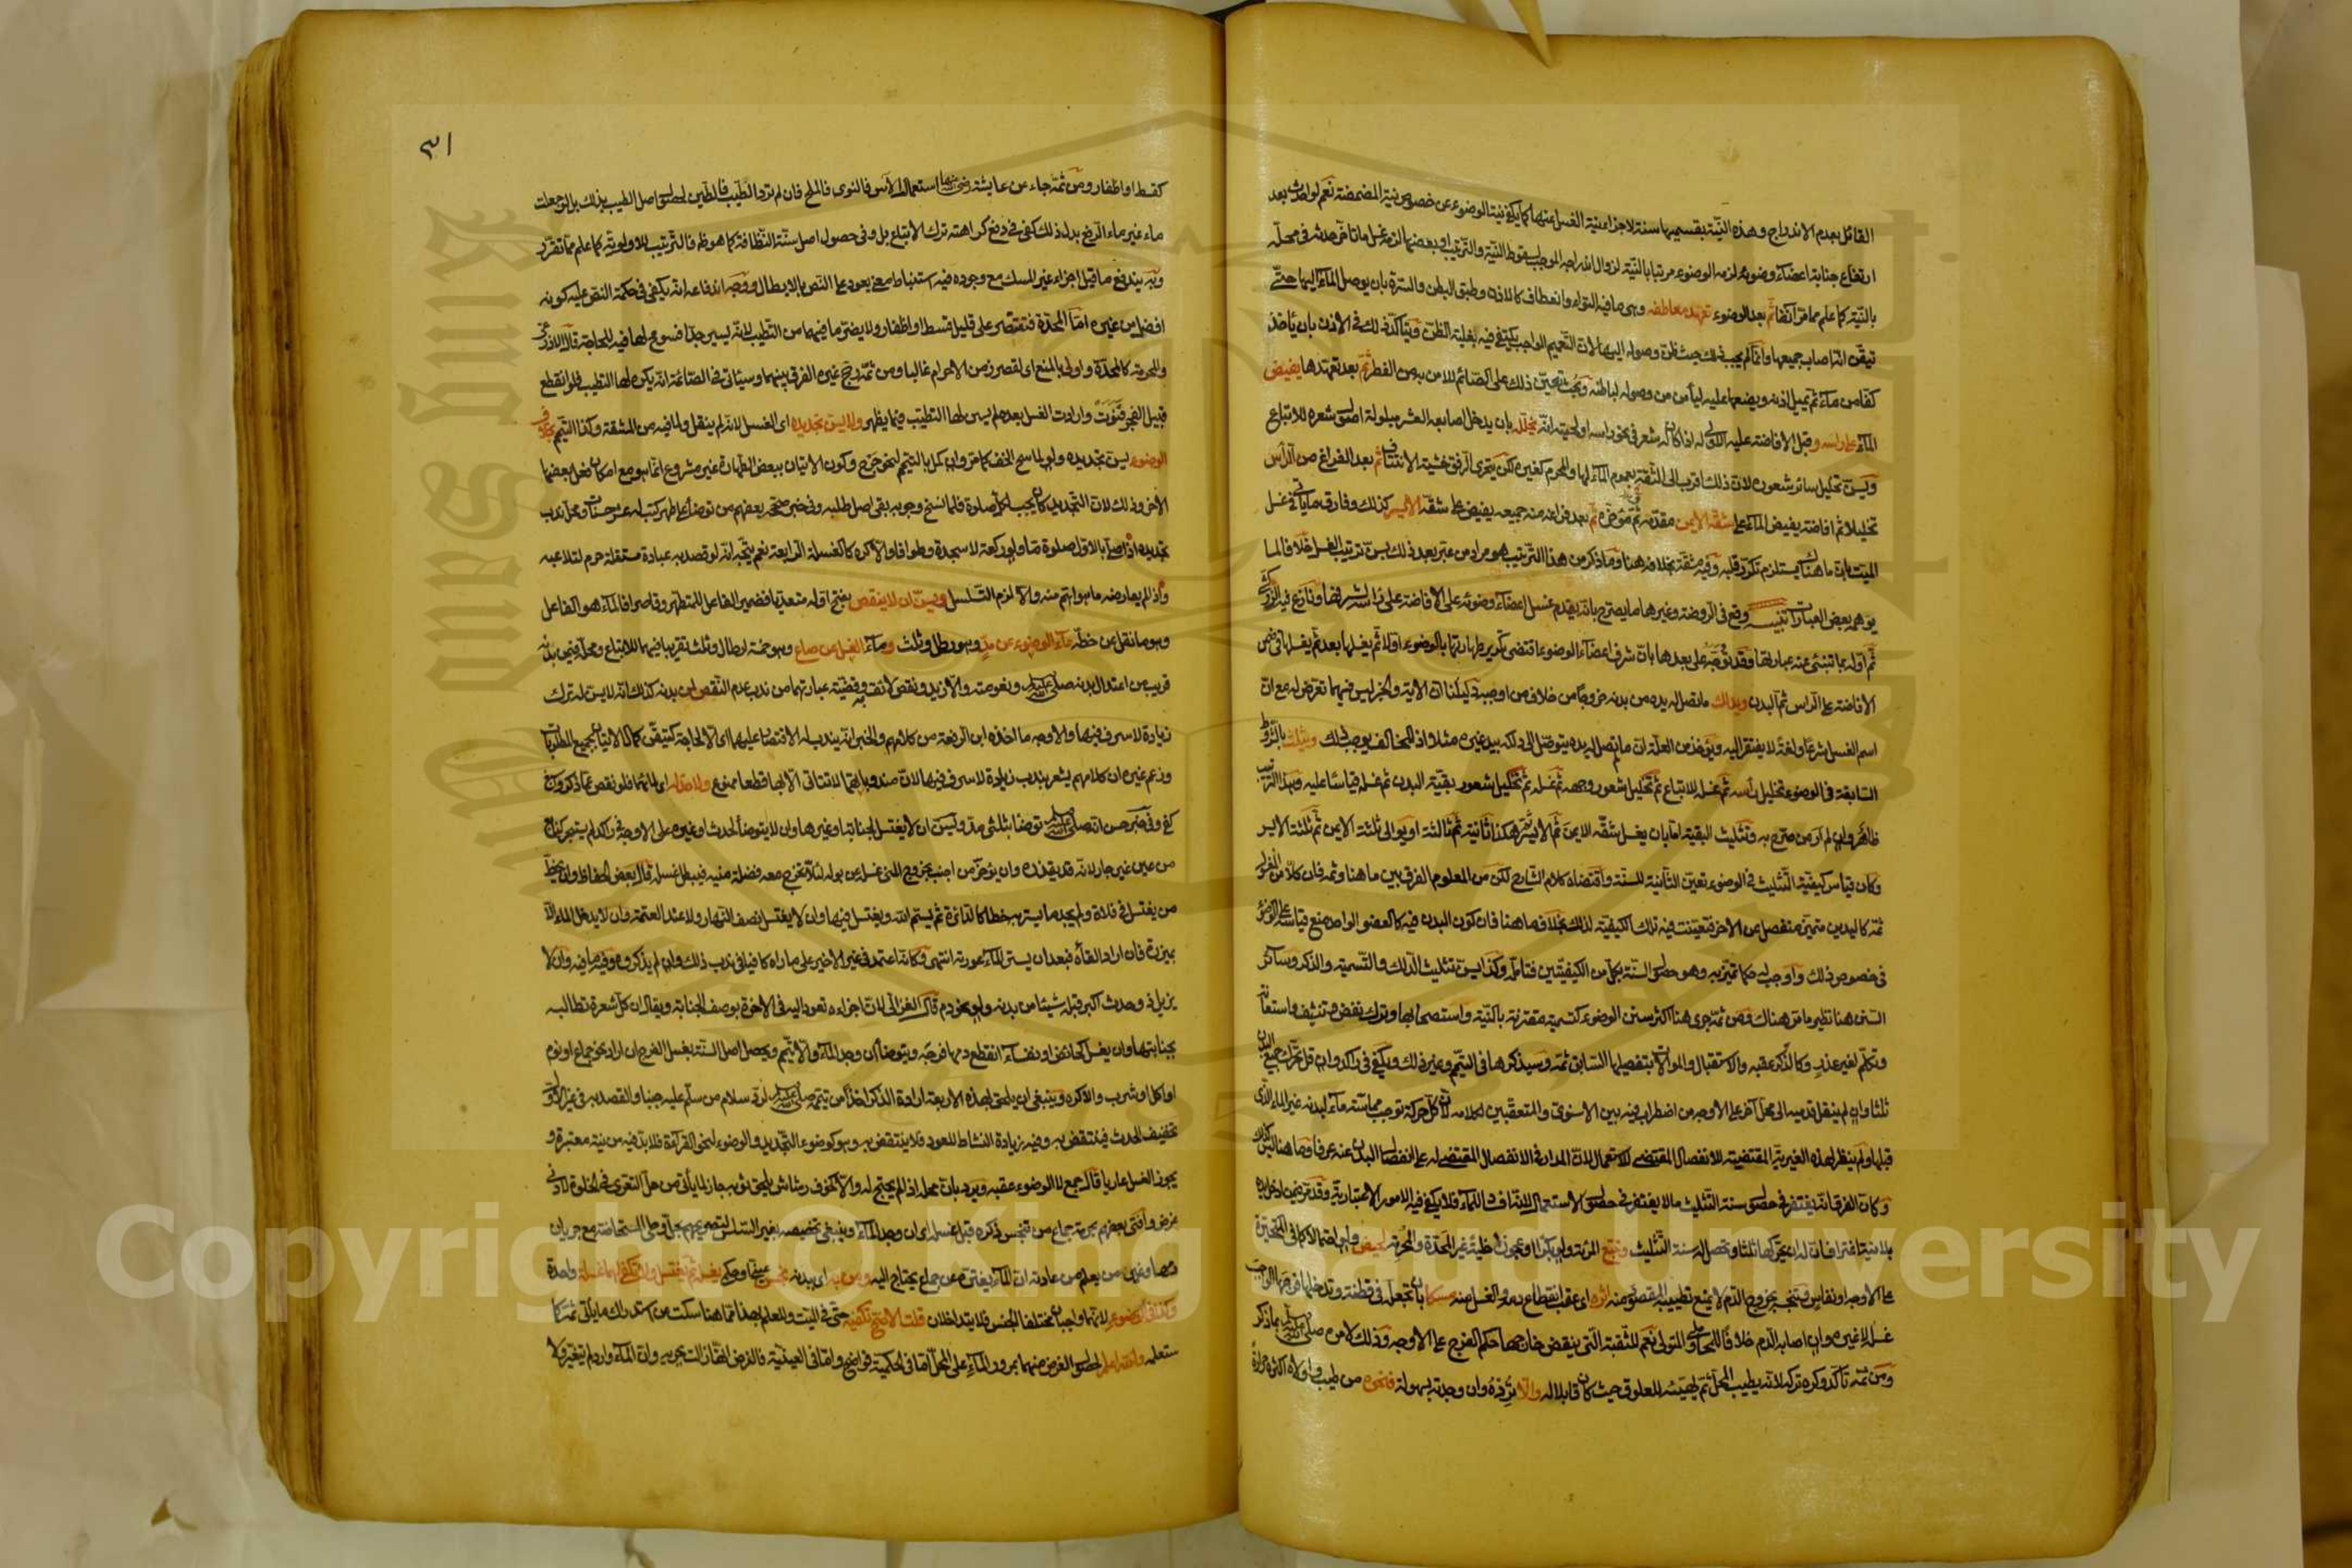 القائل بعدم الاندراج وهذه النية بقسميها سنة لاجزاء نية الغسل عنها كما يكفي نية الوضوء عن خصوص نية المضمضة نعم لو احدث بعد
ارتفاع جنابة اعضاء وضوئه لزمه الوضوء مرتبا بالنية لزوال اندراجه الموجب لسقوط النية والترتيب او بعضها لزمه غسل ما تأخر حدثه في محله
بالنية كما علم مما مر آنفا ثم بعد الوضوء تعهد معاطفه وهي ما فيه التواء وانعطاف كالاذن وطبق البطن والسرة بان يوصل الماء اليها حتى
تيقن انه اصاب جميعها وانما لم يجب ذلك حيث ظن وصوله اليها لان التعميم الواجب يكتفي فيه بغلبة الظن ويتأكد ذلك في الاذن بان يأخذ
كفا من ماء ثم يميل اذنه ويضعها عليه ليأمن من وصوله لباطنه وبحث تعين ذلك على الصائم للامن به من الفطر ثم بعد تعهدها يفيض
الماء على راسه وقبل الافاضة عليه الاولى له اذا كان له شعر في نحو راسه او لحيته انه يخلله بان يدخل اصابعه العشر مبلولة اصول شعره للاتباع
ويسن تخليل سائر شعوره لان ذلك اقرب الى الثقة بعموم الماء لها والمحرم كغيره لكن يتحرى الرفق خشية الانتتاف ثم بعد الفراغ من الرأس
تخليلا ثم افاضة يفيض الماء على شقه الايمن مقدمه ثم مؤخره ثم بعد فراغه منه جميعه يفيض على شقه الايسر كذلك وفارق ما ياتي في غسل
الميت بان ما هنا يستلزم تكرر قلبه وفيه مشقة بخلافه هنا وما ذكر من هذا الترتيب هو مراد من عبر بعد ذلك بسن ترتيب الغسل خلافا لما
يوهمه بعض العبارات تنبيه وقع في الروضة وغيرها ما يصرح بانه يقدم غسل اعضاء وضوئه على الافاضة على راسه لشرفها ونازع فيه الزركشي
ثم اوله بما تنبئ عنه عبارتها وقد توجه على بعدها بان شرف اعضاء الوضوء اقتضى تكرير طهارتها بالوضوء اولا ثم يغسلها بعده ثم يغسلها في ضمن
الافاضة على الراس ثم البدن ويدلك ما تصل له يده من بدنه خروجا من خلاف من اوجبه دليلنا ان الآية والخبر ليس فيهما تعرض له مع ان
اسم الغسل شرعا ولغة لا يفتقر اليه ويؤخذ من العلة ان ما لم تصل له يده يتوصل الى دلكه بيد غيره مثلا اذ المخالف يوجب ذلك ويثلث بالشروط
السابقة في الوضوء تخليل رأسه ثم غسله للاتباع ثم تخليل شعور وجهه ثم غسله ثم تخليل شعور بقية البدن ثم غسله قياسا عليه وهذا الترتيب
ظاهر وان لم ار من صرح به وتثليث البقية اما بان يغسل شقه الايمن ثم الايسر هكذا ثانية ثم ثالثة او يوالي ثلاثة الايمن ثم ثلاثة الايسر
وكان قياس كيفية التثليث في الوضوء تعين الثانية للسنة واقتضاه كلام الشارح لكن من المعلوم الفرق بين ما هنا وثمة فان كلا من المغسول
ثمة كاليدين متميز منفصل عن الآخر فتعينت فيه تلك الكيفية لذلك بخلاف ما هنا فان كون البدن فيه كالعضو الواحد منع قياسه على الوضوء
في خصوص ذلك واوجب له حكما تميز به وهو حصول السنة بكل من الكيفيتين فتامله وكذا يسن تثليث الدلك والتسمية والذكر وسائر
السنن هنا نظير ما مر هناك ومن ثمة جرى هنا اكثر سنن الوضوء كتسمية مقترنة بالنية واستصحابها وترك نفض وتنشيف واستعانة
وتكلم لغير عذر وكالذكر عقبه والاستقبال والموالاة بتفصيلها السابق ثمة وسيذكرها في التيمم وغير ذلك ويكفي في راكد وان قل تحرك جميع البدن
ثلثا وان لم ينقل قدميه الى محل آخر على الاوجه من اضطراب فيه بين الاسنوي والمتعقبين لكلامه لان كل حركة توجب مماسة ماء لبدنه غير الماء الذي
قبلها ولم ينظر لهذه الغيرية المقتضية للانفصال المقتضي للاستعمال لان المدار في الانفصال المقتضي له على انفصال البدن عنه عرفا وما هنا ليس كذلك
وكان الفرق انه يغتفر في حصول سنة التثليث ما لا يغتفر في حصول الاستعمال لانه افساد للماء فلا يكفي فيه الامور الاعتبارية وقد مر فيمن ادخل يده
بلا نية اغتراف ان له ان يحركها ثلثا وتحصل له سنة التثليث وتتبع المرأة ولو بكرا او عجوزا خلية غير المحدة والمحرمة لحيض ولو احتمالا كما في المتحيرة
على الاوجه او نفاس فتنجس بخروج الدم لا يمنع تطييبه المقصود منه اثره اي عقب انقطاع دمه والغسل منه مسكا بان تجعله في قطنة وتدخلها فرجها الواجب
غسله لا غيره وان اصابه الدم خلافا للمحاملي والمتولي نعم للثقبة التي ينقض خارجها حكم الفرج على الاوجه وذلك لامره صلى الله عليه وسلم بما ذكر
ومن ثمة تأكد وكره تركه لانه يطيب المحل ثم يهيئه للعلوق حيث كان قابلا له والا ترده وان وجدته بسهولة فنحوه من طيب واولاه اكثره حرارة
٣١
كقسط او اظفار ومن ثمة جاء عن عايشة رضي الله عنها استعمال الآس فالنوى فالملح فان لم ترد الطيب فالطين لحصول اصل الطيب بذلك بل لو جعلت
ماء غير ماء الرفع بدل ذلك كفى في دفع كراهته ترك الاتباع بل وفي حصول اصل سنة النظافة كما هو ظاهر فالترتيب للاولوية كما علم مما تقرر
وبه يندفع ما قيل اجزاء غير المسك مع وجوده فيه استنباط معنى يعود على النص بالابطال ووجه اندفاعه انه يكفي في حكمة النص عليه كونه
افضل من غيره اما المحدة فتقتصر على قليل قسط او اظفار ولا يضر ما فيهما من التطيب لانه يسير جدا فسومح لها فيه للحاجة قال الاذرعي
والمحرمة كالمحدة واولى بالمنع اي لقصر زمن الاحرام غالبا ومن ثمة رجح غيره الفرق بينهما وسياتي في الصائمة انه يكره لها التطيب فلو انقطع
قبيل الفجر فنوت وارادت الغسل بعده لم يسن لها التطيب فيما يظهر ولا يسن تجديده اي الغسل لانه لم ينقل ولما فيه من المشقة وكذا التيمم بخلاف
الوضوء يسن تجديده ولو لماسح الخف كما مر وان كمل بالتيمم لنحو جرح وكون الاتيان ببعض الطهارة غير مشروع انما هو مع امكان فعل بعضها
الآخر وذلك لان التجديد كان يجب لكل صلوة فلما نسخ وجوبه بقي اصل طلبه وفي خبر صححه بعضهم من توضأ على طهر كتب له عشر حسنات ومحل ندب
تجديده اذا صلى بالاول صلوة ما ولو ركعة لا سجدة وطوافا والا كره كالغسلة الرابعة نعم يتجه انه لو قصد به عبادة مستقلة حرم لتلاعبه
واذا لم يعارضه ما هو اهم منه والا لزم التسلسل ويسن ان لا ينقص بفتح اوله متعديا فضمير الفاعل للمتطهر وقاصرا فالماء هو الفاعل
وهو ما نقل عن خطه ماء الوضوء عن مد وهو رطل وثلث وماء الغسل عن صاع وهو خمسة ارطال وثلث تقريبا فيهما للاتباع ومحله فيمن بدنه
قريب من اعتدال بدنه صلى الله عليه وسلم ونعومته والا زيد ونقص لائق به وقضية عبارتهما من ندب عدم النقص لمن بدنه كذلك انه لا يسن له ترك
زيادة لا سرف فيها والاوجه ما اخذه ابن الرفعة من كلامهم والخبر انه يندب له الاقتصار عليهما اي الا لحاجة كتيقن كمال الاتيان بجميع المطلوبات
وزعم غيره ان كلامهم يشعر بندب زيادة لا سرف فيها لان مندوباتهما لا تتاتى الا بها قطعا ممنوع ولا حد له اي لمائهما فلو نقص عما ذكر واسبغ
كفى وفي خبر حسن انه صلى الله عليه وسلم توضا بثلثي مد ويسن ان لا يغتسل لجنابة او غيرها وان لا يتوضأ لحدث او غيره على الاوجه في راكد لم يستبحر كنابع
من عين غير جار لانه قد يقذره وان يؤخر من اجنب بخروج المني غسله عن بوله لئلا تخرج معه فضلة منيه فيبطل غسله قال بعض الحفاظ وان يخط
من يغتسل في فلاة ولم يجد ما يستتر به خطا كالدائرة ثم يسمي الله ويغتسل فيها وان لا يغتسل نصف النهار ولا عند العتمة وان لا يدخل الماء الا
بمئزرة فان اراد القاءه فبعد ان يستر الماء عورته انتهى وكانه اعتمد في غير الاخير على ما راه كافيا في ندب ذلك وان لم يذكروه وفيه ما فيه وان لا
يزيل ذو حدث اكبر قبله شيئا من بدنه ولو نحو دم قال الغزالي لان اجزاءه تعود اليه في الآخرة بوصف الجنابة ويقال ان كل شعرة تطالبه
بجنابتها وان يغسل كحائض او نفساء انقطع دمها فرجه ويتوضأ ان وجد الماء والا تيمم ويحصل اصل السنة بغسل الفرج ان اراد نحو جماع او نوم
او اكل او شرب والا كره وينبغي ان يلحق بهذه الاربعة ارادة الذكر اخذا من تيممه صلى الله عليه وسلم لرد سلام من سلم عليه جنبا والقصد به في غير الاول
تخفيف الحدث فينتقض به وفيه زيادة النشاط للعود فلا ينتقض به وهو كوضوء التجديد والوضوء لنحو القرآءة فلا بد فيه من نية معتبرة و
يجوز الغسل عاريا قال جمع لا الوضوء عقبه ويرد بان محله اذا لم يحتج له والا كخوف رشاش يلحق ثوبه جاز لما يأتي من حل التعري في الخلوة لادنى
غرض وافتى بعضهم بحرمة جماع من تنجس ذكره قبل غسله اي ان وجد الماء وينبغي تخصيصه بغير السلس لتصريحهم بحل وطئ المستحاضة مع جريان
دمها وغيره من يعلم من عادته ان الماء يفتره عن جماع يحتاج اليه ومن به اي بدنه نجس عيني او حكمي يغسله ثم يغتسل ولا تكفي لهما غسلة واحدة
وكذا في الوضوء لانهما واجبان مختلفا الجنس فلا يتداخلان قلت الاصح تكفيه حتى في الميت وللعلم بهذا مما هنا سكت عن استدراك ما يأتي ثمة كما
ستعلمه والله اعلم لحصول الغرض منهما بمرور الماء على المحل اما في الحكمية فواضح واما في العينية فالفرض انها زالت بجرية وان الماء وارد لم يتغير ولا